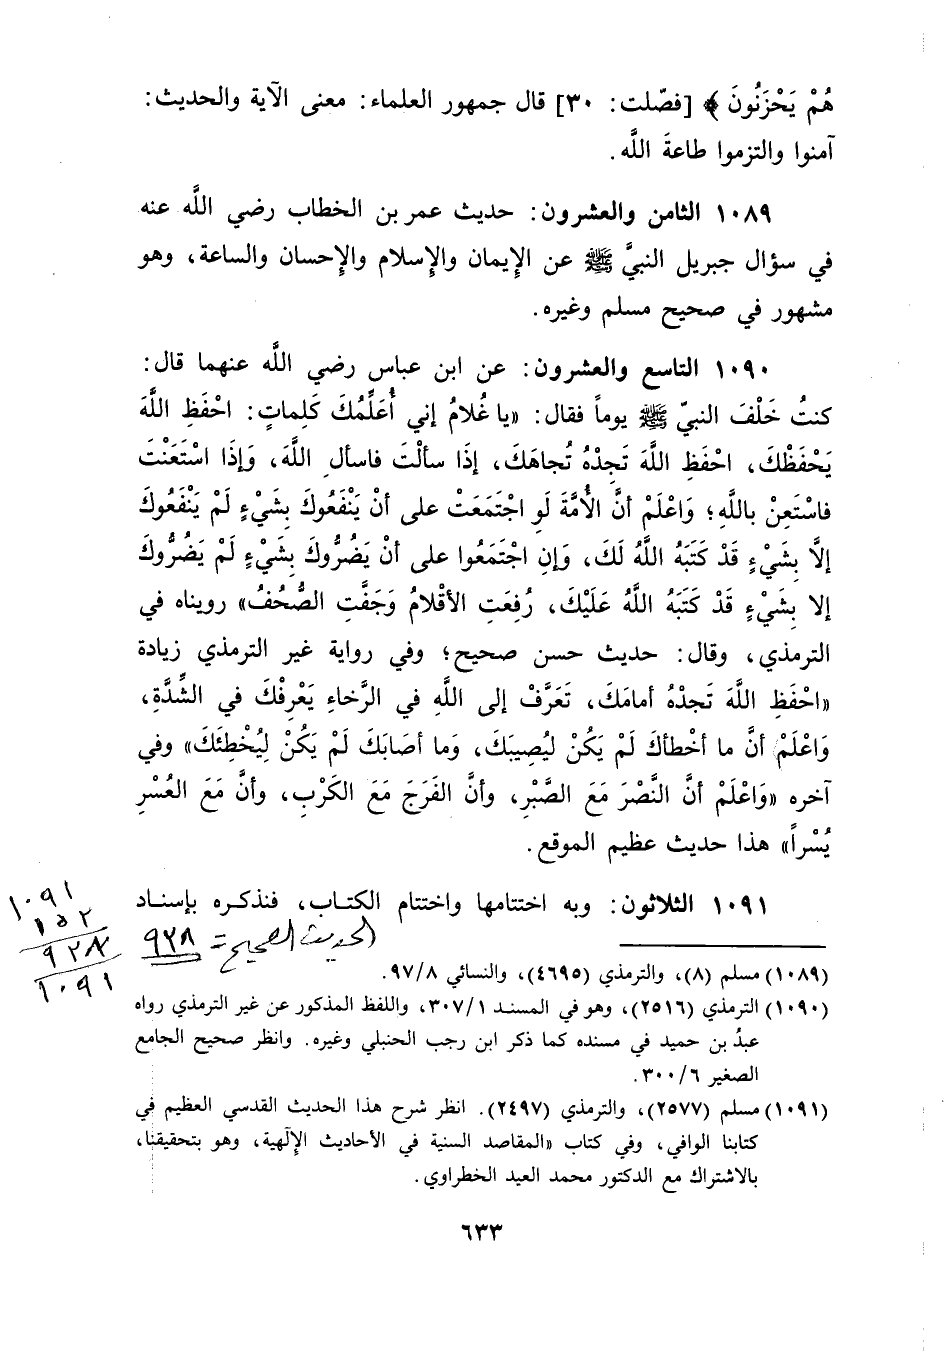 هُمْ يَحْزَنُونَ ﴾ [فصّلت: ٣٠] قال جمهور العلماء: معنى الآية والحديث:
آمنوا والتزموا طاعةَ اللَّه.
١٠٨٩ الثامن والعشرون: حديث عمر بن الخطاب رضي اللَّه عنه
في سؤال جبريل النبيَّ ﷺ عن الإِيمان والإِسلام والإِحسان والساعة، وهو
مشهور في صحيح مسلم وغيره.
١٠٩٠ التاسع والعشرون: عن ابن عباس رضي اللَّه عنهما قال:
كنتُ خَلْفَ النبيّ ﷺ يوماً فقال: «يا غُلامُ إني أُعَلِّمُكَ كَلِماتٍ: احْفَظِ اللَّهَ
يَحْفَظْكَ، احْفَظِ اللَّهَ تَجِدْهُ تُجاهَكَ، إذَا سألْتَ فاسألِ اللَّهَ، وَإذَا اسْتَعَنْتَ
فاسْتَعِنْ باللَّهِ؛ وَاعْلَمْ أنَّ الأُمَّةَ لَوِ اجْتَمَعَتْ على أنْ يَنْفَعُوكَ بِشَيْءٍ لَمْ يَنْفَعُوكَ
إلاَّ بِشَيْءٍ قَدْ كَتَبَهُ اللَّهُ لَكَ، وَإنِ اجْتَمَعُوا على أنْ يَضُرُّوكَ بِشَيْءٍ لَمْ يَضُرُّوكَ
إلا بِشَيْءٍ قَدْ كَتَبَهُ اللَّهُ عَلَيْكَ، رُفِعَتِ الأقْلامُ وَجَفَّتِ الصُّحُفُ» رويناه في
الترمذي، وقال: حديث حسن صحيح؛ وفي رواية غير الترمذي زيادة
«احْفَظِ اللَّهَ تَجدْهُ أمامَكَ، تَعَرَّفْ إلى اللَّهِ في الرَّخاءِ يَعْرِفْكَ في الشِّدَّةِ،
وَاعْلَمْ أنَّ ما أخْطأكَ لَمْ يَكُنْ لِيُصِيبَكَ، وَما أصَابَكَ لَمْ يَكُنْ لِيُخْطِئَكَ» وفي
آخره «وَاعْلَمْ أنَّ النَّصْرَ مَعَ الصَّبْرِ، وأنَّ الفَرَجَ مَعَ الكَرْبِ، وأنَّ مَعَ العُسْرِ
يُسْراً» هذا حديث عظيم الموقع.
١٠٩١ الثلاثون: وبه اختتامها واختتام الكتاب، فنذكره بإسناد
١٠٩١
١٥٢
٩٢٨
١٠٩١
الحديث الصحيح = ٩٢٨
(١٠٨٩) مسلم (٨)، والترمذي (٤٦٩٥)، والنسائي ٩٧/٨.
(١٠٩٠) الترمذي (٢٥١٦)، وهو في المسند ٣٠٧/١، واللفظ المذكور عن غير الترمذي رواه
عبدُ بن حميد في مسنده كما ذكر ابن رجب الحنبلي وغيره. وانظر صحيح الجامع
الصغير ٣٠٠/٦.
(١٠٩١) مسلم (٢٥٧٧)، والترمذي (٢٤٩٧). انظر شرح هذا الحديث القدسي العظيم في
كتابنا الوافي، وفي كتاب «المقاصد السنية في الأحاديث الإِلٓهية، وهو بتحقيقنا،
بالاشتراك مع الدكتور محمد العيد الخطراوي.
٦٣٣